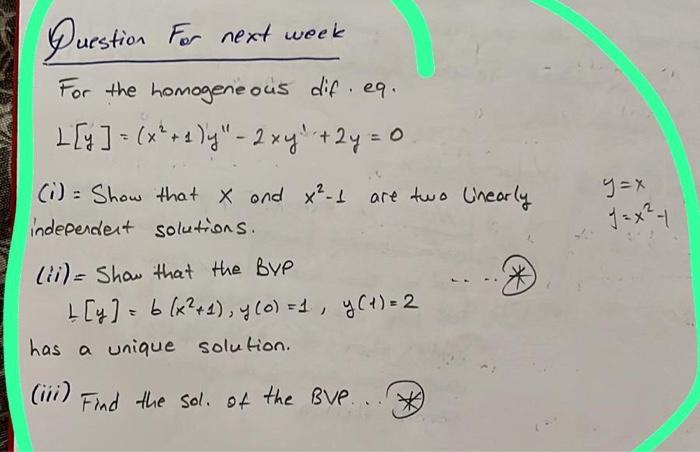 Question For next week
For the homogeneous dif. eq.
L[y] = (x²+1)y" - 2xy' + 2y = 0
(i) = Show that x and x²-1 are two linearly
independent solutions.
y=x
y=x²-1
(ii) = Show that the BVP ..... *
L[y] = 6(x²+1), y(0)=1, y(1)=2
has a unique solution.
(iii) Find the sol. of the BVP... *